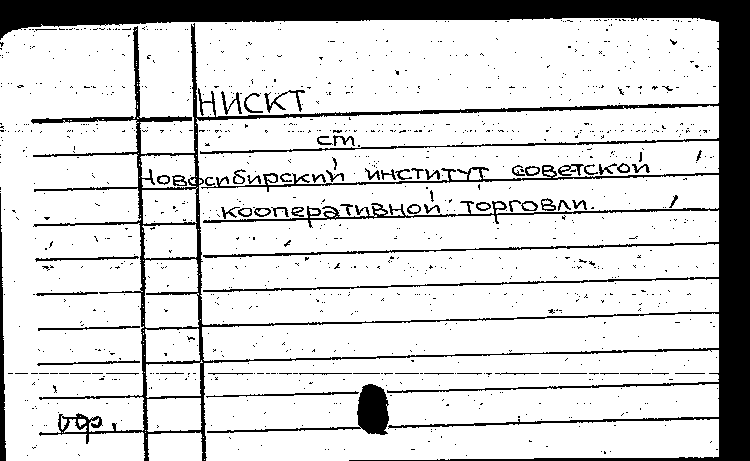 НИСКТ
см.
Новосибирский институт советской
кооперативной торговли.